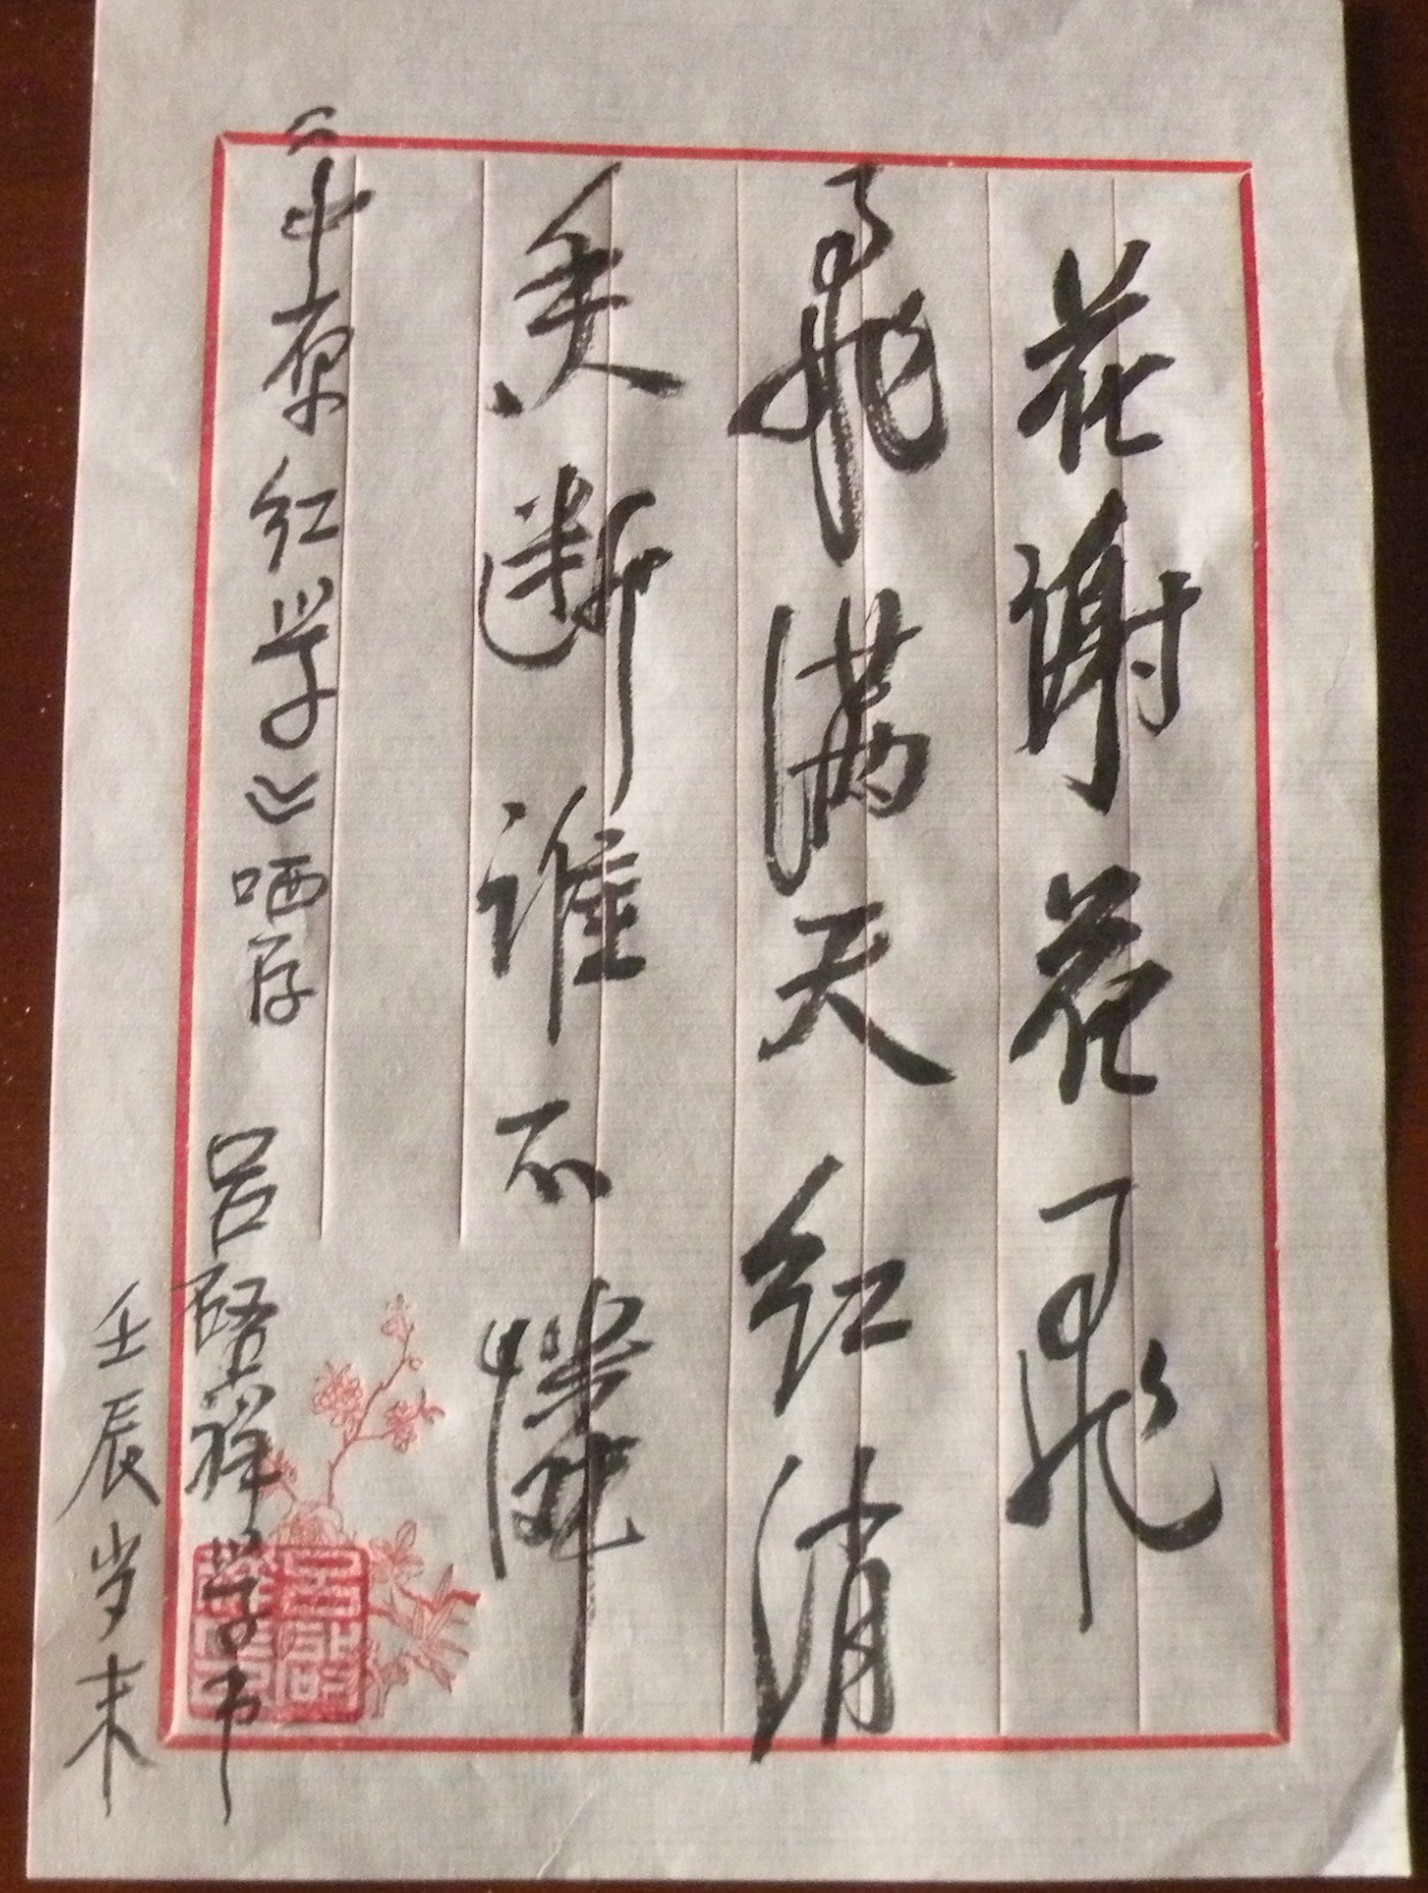 花谢花飛
飛满天红消
香断谁不憐
《中原红学》哂存 吕啓祥学书
壬辰岁末